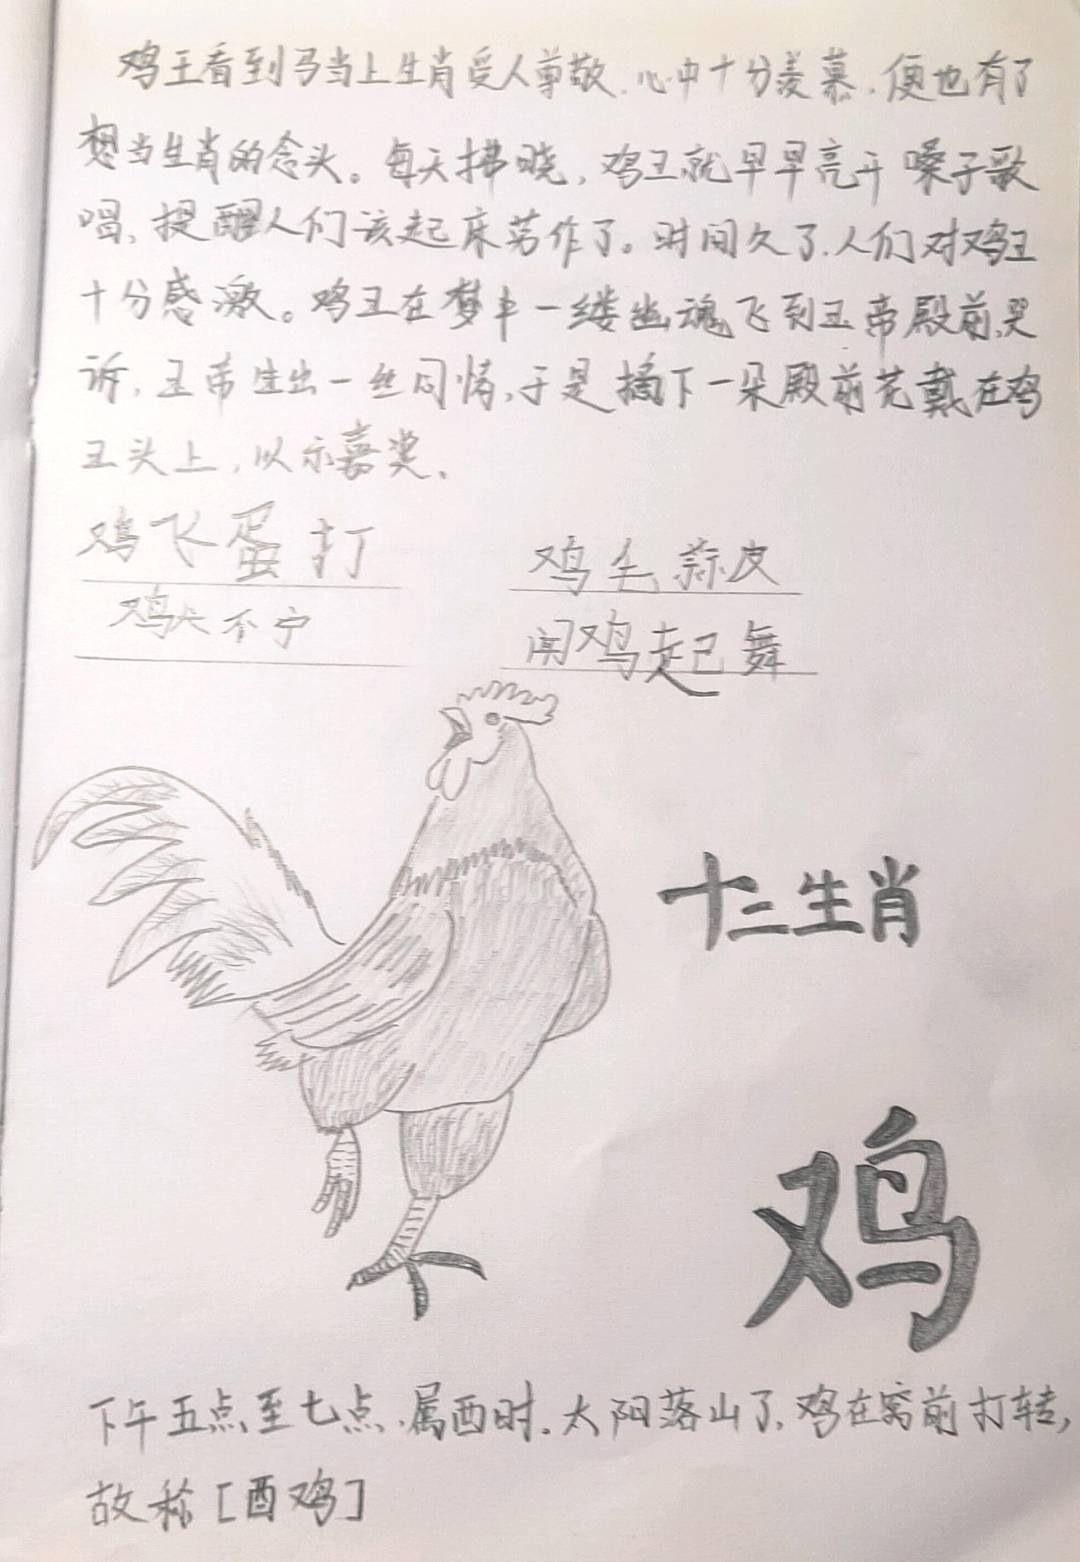 鸡王看到马当上生肖受人尊敬,心中十分羡慕,便也有了
想当生肖的念头。每天拂晓,鸡王就早早亮开嗓子歌
唱,提醒人们该起床劳作了。时间久了,人们对鸡王
十分感激。鸡王在梦中一缕幽魂飞到玉帝殿前哭
诉,玉帝生出一丝同情,于是摘下一朵殿前花戴在鸡
王头上,以示嘉奖。
鸡飞蛋打
鸡毛蒜皮
鸡犬不宁
闻鸡起舞
十二生肖
鸡
下午五点至七点,属酉时。太阳落山了,鸡在窝前打转,
故称[酉鸡]